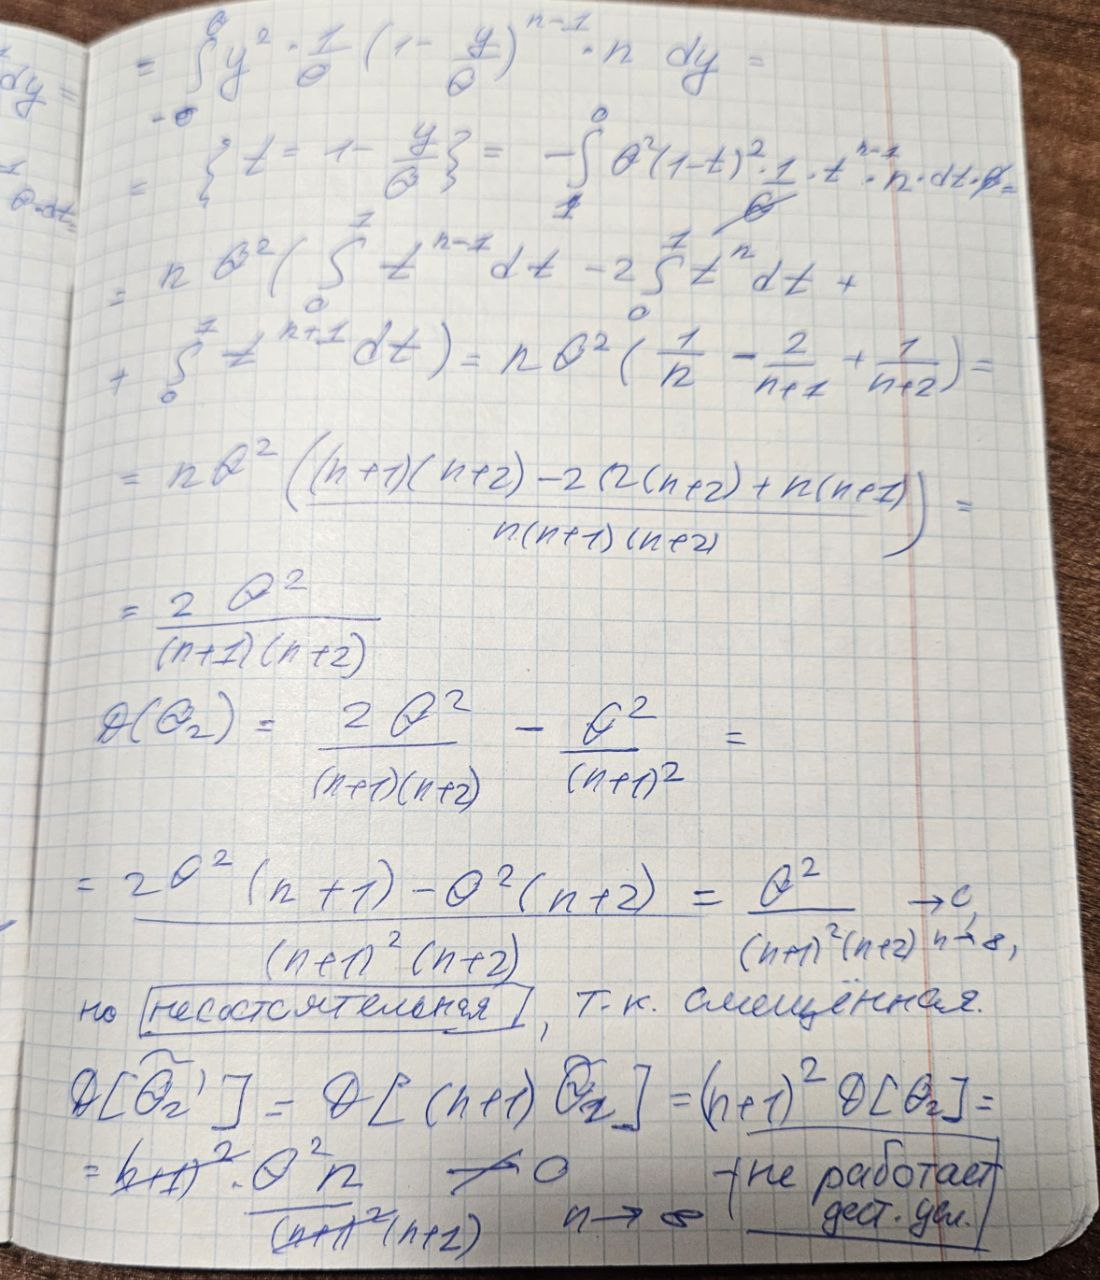 dy =
= ∫_{-0}^{θ} y² · 1/θ (1 - y/θ)^{n-1} · n dy =
θ·dt =
= { t = 1 - y/θ } = -∫_{1}^{0} θ²(1-t)² · 1/θ · t^{n-1} · n · dt · θ =
= n θ² ( ∫_{0}^{1} t^{n-1} dt - 2 ∫_{0}^{1} t^{n} dt +
+ ∫_{0}^{1} t^{n+1} dt ) = n θ² ( 1/n - 2/(n+1) + 1/(n+2) ) =
= n θ² ( ((n+1)(n+2) - 2(2(n+2) + n(n+1)) / (n(n+1)(n+2)) ) =
= 2 θ² / ((n+1)(n+2))
D(θ₂) = 2 θ² / ((n+1)(n+2)) - θ² / (n+1)² =
= (2θ² (n+1) - θ² (n+2)) / ((n+1)² (n+2)) = θ² / ((n+1)² (n+2)) → 0, n→∞,
но несостоятельная, т.к. смещённая.
D[θ̃₂'] = D[(n+1) θ̃₂] = (n+1)² D[θ₂] =
= (n+1)² · θ² n / ((n+1)² (n+2)) ↛ 0 n → ∞ - не работает
дост. усл.